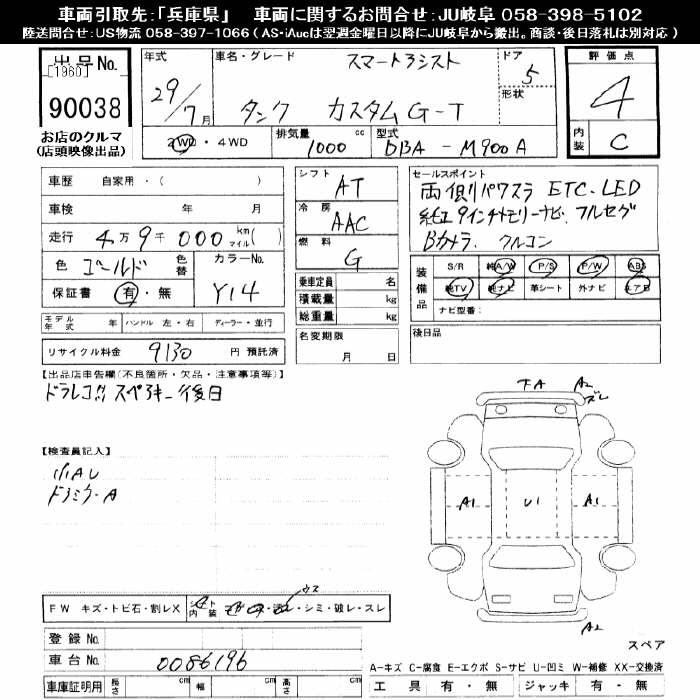 車両引取先：「兵庫県」　車両に関するお問合せ：JU岐阜 058-398-5102
陸送問合せ：US物流 058-397-1066（AS・iAucは翌週金曜日以降にJU岐阜から搬出。商談・後日落札は別対応）
出品No.
[1960]
90038
お店のクルマ
(店頭映像出品)
年式
29/7月
車名・グレード
スマートアシスト
タンク カスタムG-T
ドア
5
形状
2WD・4WD
排気量
1000 cc
型式
DBA - M900A
評価点
4
内装
C
車歴 自家用・( )
車検 年 月
走行 4万9千000 km マイル( )
色 ゴールド 色替 カラーNo.
Y14
保証書 有・無
モデル年式 年 ハンドル 左・右 ディーラー・並行
リサイクル料金 9130 円 預託済
シフト AT
冷房 AAC
燃料 G
乗車定員 名
積載量 kg
総重量 kg
名変期限
月 日
セールスポイント
両側パワスラ ETC・LED
純正9インチメモリーナビ. フルセグ
Bカメラ. クルコン
装備品
S/R 純A/W P/S P/W ABS
純TV 純ナビ 革シート 外ナビ エアB
ナビ型番：
後日品
【出品店申告欄(不良箇所・欠品・注意事項等)】
ドラレコ!! スペアキー後日
【検査員記入】
小AU
ドアミラーA
FA A2
ズレ
A1 U1 A1
A2
FW キズ・トビ石・割レX
シート内装
シミ・破レ・スレ
ウス
登録No.
車台No. 0086196
車庫証明用 長さ cm 幅 cm 高さ cm
スペア
A-キズ C-腐食 E-エクボ S-サビ U-凹ミ W-補修 XX-交換済
工具 有・無 ジャッキ 有・無